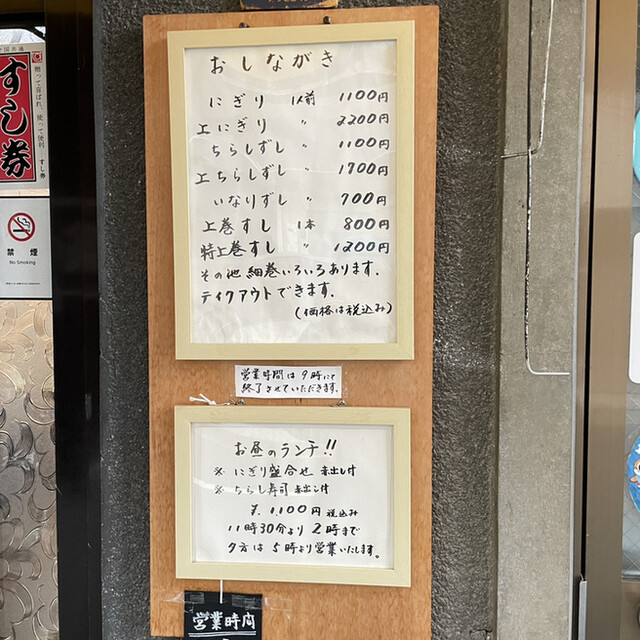 全国共通
すし券
贈って喜ばれ、使って便利 すし券
禁煙
No Smoking
おしながき
にぎり 1人前 1100円
上にぎり 〃 2200円
ちらしずし 〃 1100円
上ちらしずし 〃 1700円
いなりずし 〃 700円
上巻すし 1本 800円
特上巻すし 〃 1200円
その他細巻いろいろあります.
テイクアウトできます.
(価格は税込み)
営業時間は9時にて
終了させていただきます.
お昼のランチ!!
※ にぎり盛合せ 赤出し付
※ ちらし寿司 赤出し付
¥.1,100円 税込み
11時30分より2時まで
夕方は5時より営業いたします。
営業時間